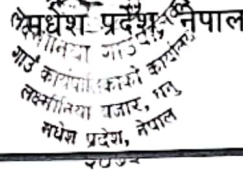 मधेश प्रदेश, नेपाल
लक्ष्मीनिया गाउँ
गाउँ कार्यपालिकाको कार्यालय
लक्ष्मीनिया बजार, धनु
मधेश प्रदेश, नेपाल
२०७३